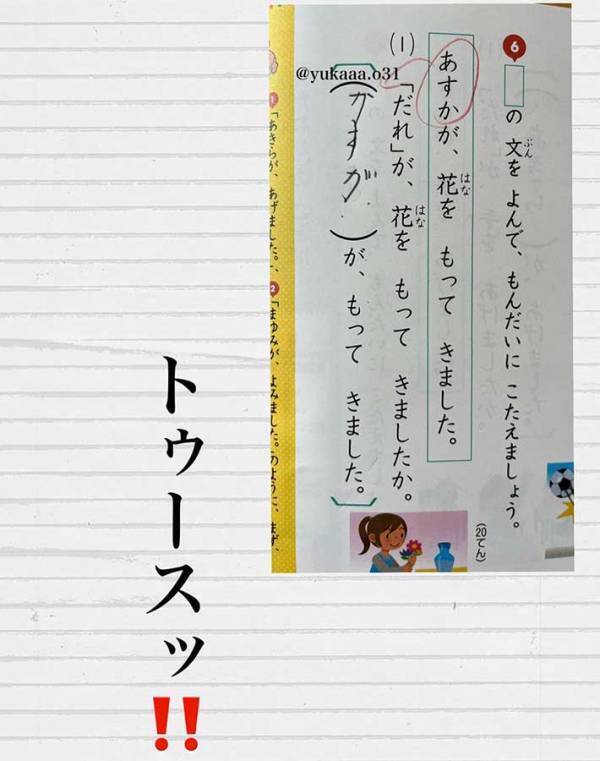 6 の 文を よんで、もんだいに こたえましょう。
ぶん
(20てん)
あすかが、花を もって きました。
はな
(1) 「だれ」が、花を もって きましたか。
はな
(かすが)が、もって きました。
@yukaaa.o31
1 「あきらが、あげました。」、
2 「まゆみが、よみました。」のように、まず、
トゥースッ‼